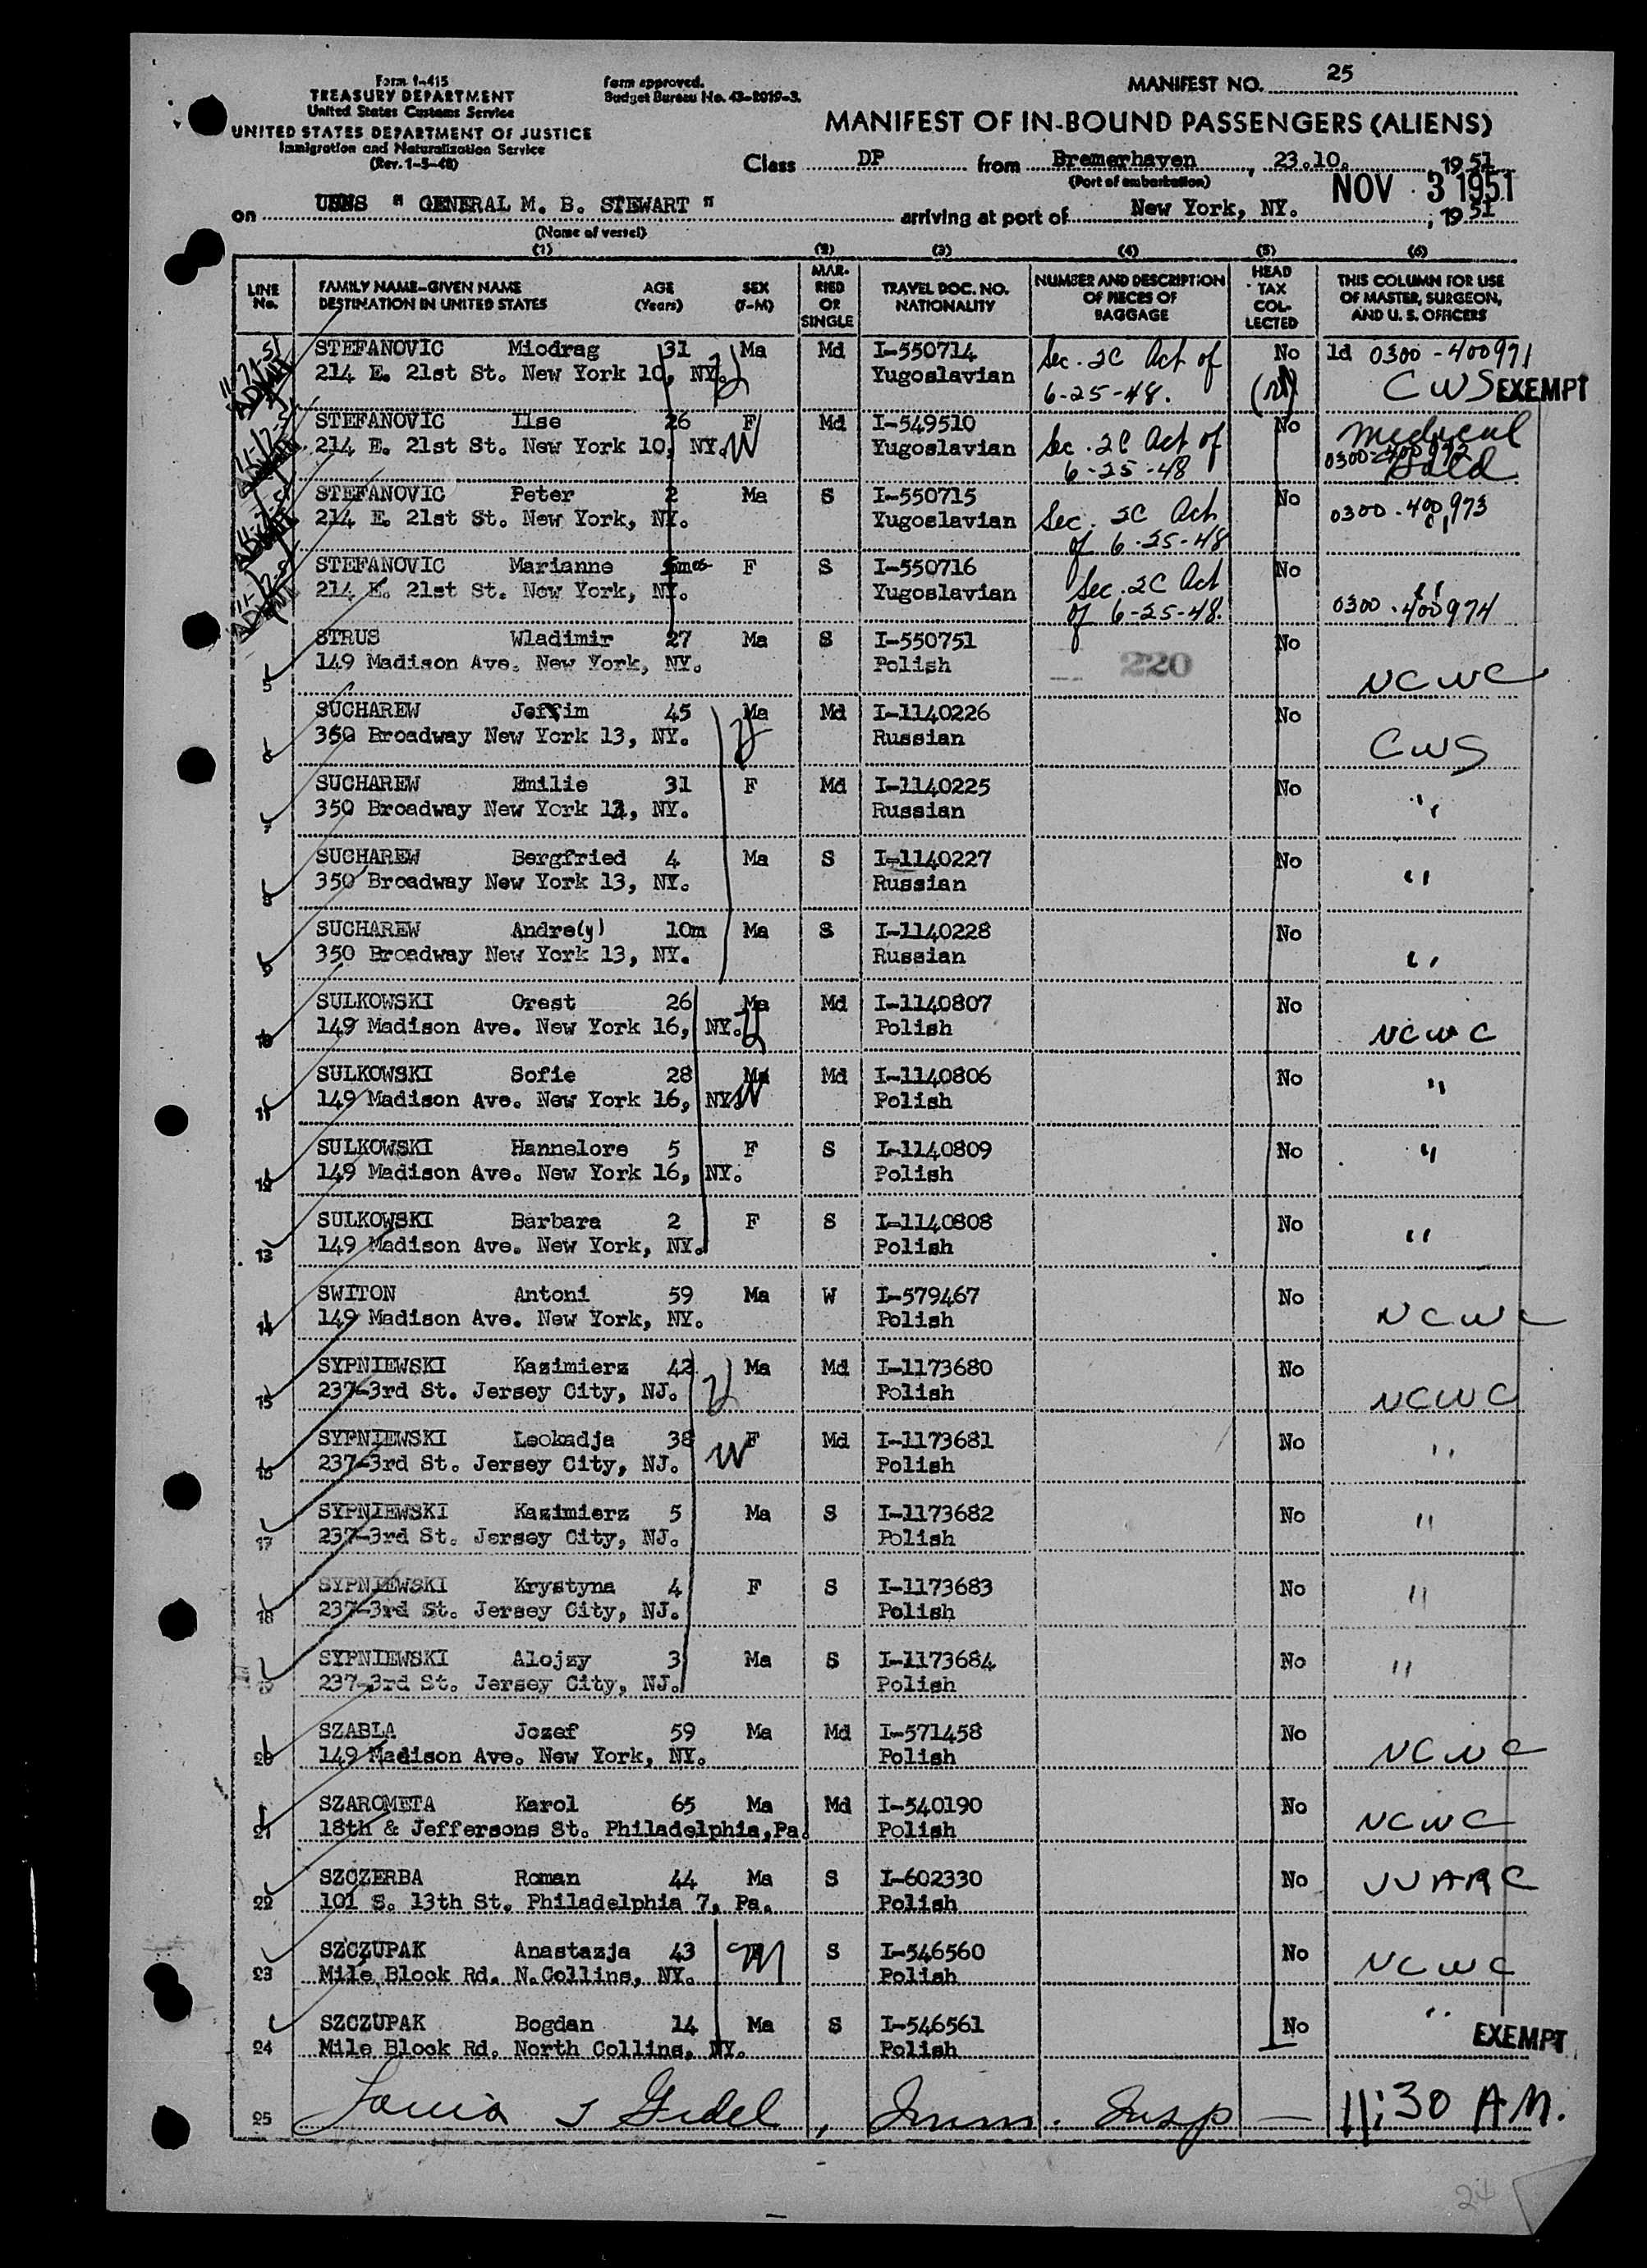 Form I-415
TREASURY DEPARTMENT
United States Customs Service
UNITED STATES DEPARTMENT OF JUSTICE
Immigration and Naturalization Service
(Rev. 1-5-48)
Form approved.
Budget Bureau No. 43-R019-3.
MANIFEST NO. 25
MANIFEST OF IN-BOUND PASSENGERS (ALIENS)
Class DP from Bremerhaven, 23.10. 1951
(Port of embarkation)
NOV 3 1951
on USNS " GENERAL M. B. STEWART " arriving at port of New York, NY. , 1951
(Name of vessel)
(1) (2) (3) (4) (5) (6)
LINE No.
FAMILY NAME-GIVEN NAME AGE SEX
DESTINATION IN UNITED STATES (Years) (F-M)
MARRIED OR SINGLE
TRAVEL DOC. NO. NATIONALITY
NUMBER AND DESCRIPTION OF PIECES OF BAGGAGE
HEAD TAX COLLECTED
THIS COLUMN FOR USE OF MASTER, SURGEON, AND U. S. OFFICERS
STEFANOVIC Miodrag 31 Ma Md I-550714 Sec. 2C Act of No 1d 0300-400971
214 E. 21st St. New York 10, NY. Yugoslavian 6-25-48. CWS EXEMPT
STEFANOVIC Ilse 26 F Md I-549510 Sec. 2C Act of No medical
214 E. 21st St. New York 10, NY. W Yugoslavian 6-25-48 0300-400972 Hold
STEFANOVIC Peter 2 Ma S I-550715 Sec. 2C Act No 0300-400973
214 E. 21st St. New York, NY. Yugoslavian of 6-25-48
STEFANOVIC Marianne 5mos F S I-550716 Sec. 2C Act No "
214 E. 21st St. New York, NY. Yugoslavian of 6-25-48. 0300-400974
5 STRUS Wladimir 27 Ma S I-550751 No
149 Madison Ave. New York, NY. Polish 220 NCWC
6 SUCHAREW Jeffim 45 Ma Md I-1140226 No
350 Broadway New York 13, NY. Russian CWS
7 SUCHAREW Emilie 31 F Md I-1140225 No "
350 Broadway New York 13, NY. Russian
8 SUCHAREW Bergfried 4 Ma S I-1140227 No "
350 Broadway New York 13, NY. Russian
9 SUCHAREW Andre(y) 10m Ma S I-1140228 No "
350 Broadway New York 13, NY. Russian
10 SULKOWSKI Orest 26 Ma Md I-1140807 No
149 Madison Ave. New York 16, NY. Polish NCWC
11 SULKOWSKI Sofie 28 Ma Md I-1140806 No "
149 Madison Ave. New York 16, NY. W Polish
12 SULKOWSKI Hannelore 5 F S I-1140809 No "
149 Madison Ave. New York 16, NY. Polish
13 SULKOWSKI Barbara 2 F S I-1140808 No "
149 Madison Ave. New York, NY. Polish
14 SWITON Antoni 59 Ma W I-579467 No
149 Madison Ave. New York, NY. Polish NCWC
15 SYPNIEWSKI Kazimierz 42 Ma Md I-1173680 No
237-3rd St. Jersey City, NJ. Polish NCWC
16 SYPNIEWSKI Leokadja 38 F Md I-1173681 No "
237-3rd St. Jersey City, NJ. W Polish
17 SYPNIEWSKI Kazimierz 5 Ma S I-1173682 No "
237-3rd St. Jersey City, NJ. Polish
18 SYPNIEWSKI Krystyna 4 F S I-1173683 No "
237-3rd St. Jersey City, NJ. Polish
19 SYPNIEWSKI Alojzy 3 Ma S I-1173684 No "
237-3rd St. Jersey City, NJ. Polish
20 SZABLA Jozef 59 Ma Md I-571458 No
149 Madison Ave. New York, NY. Polish NCWC
21 SZAROMETA Karol 65 Ma Md I-540190 No
18th & Jeffersons St. Philadelphia, Pa. Polish NCWC
22 SZCZERBA Roman 44 Ma S I-602330 No UUARC
101 S. 13th St. Philadelphia 7, Pa. Polish
23 SZCZUPAK Anastazja 43 S I-546560 No
Mile Block Rd. N.Collins, NY. Polish NCWC
24 SZCZUPAK Bogdan 14 Ma S I-546561 No "
Mile Block Rd. North Collins, NY. Polish EXEMPT
25 Gidel, Imm. Insp — 11:30 AM.
24